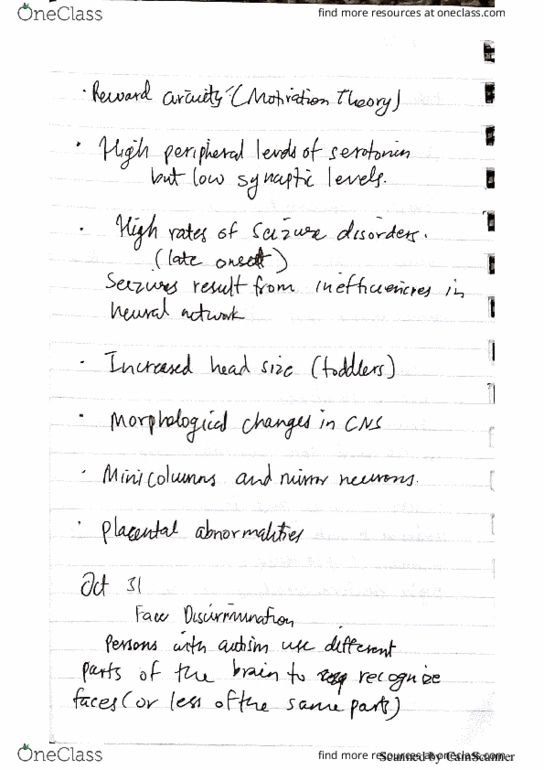 OneClass
find more resources at oneclass.com
· Reward circuity (Motivation Theory)
· High peripheral levels of serotonin
but low synaptic levels.
· High rates of seizure disorders.
(late onset)
Seizures result from inefficiencies in
neural network
· Increased head size (toddlers)
· Morphological changes in CNS
· Minicolumns and mirror neurons.
· Placental abnormalities
Oct 31
Face Discrimination
Persons with autism use different
parts of the brain to recognize
faces (or less of the same parts)
OneClass
find more resources at oneclass.com
Scanned by CamScanner